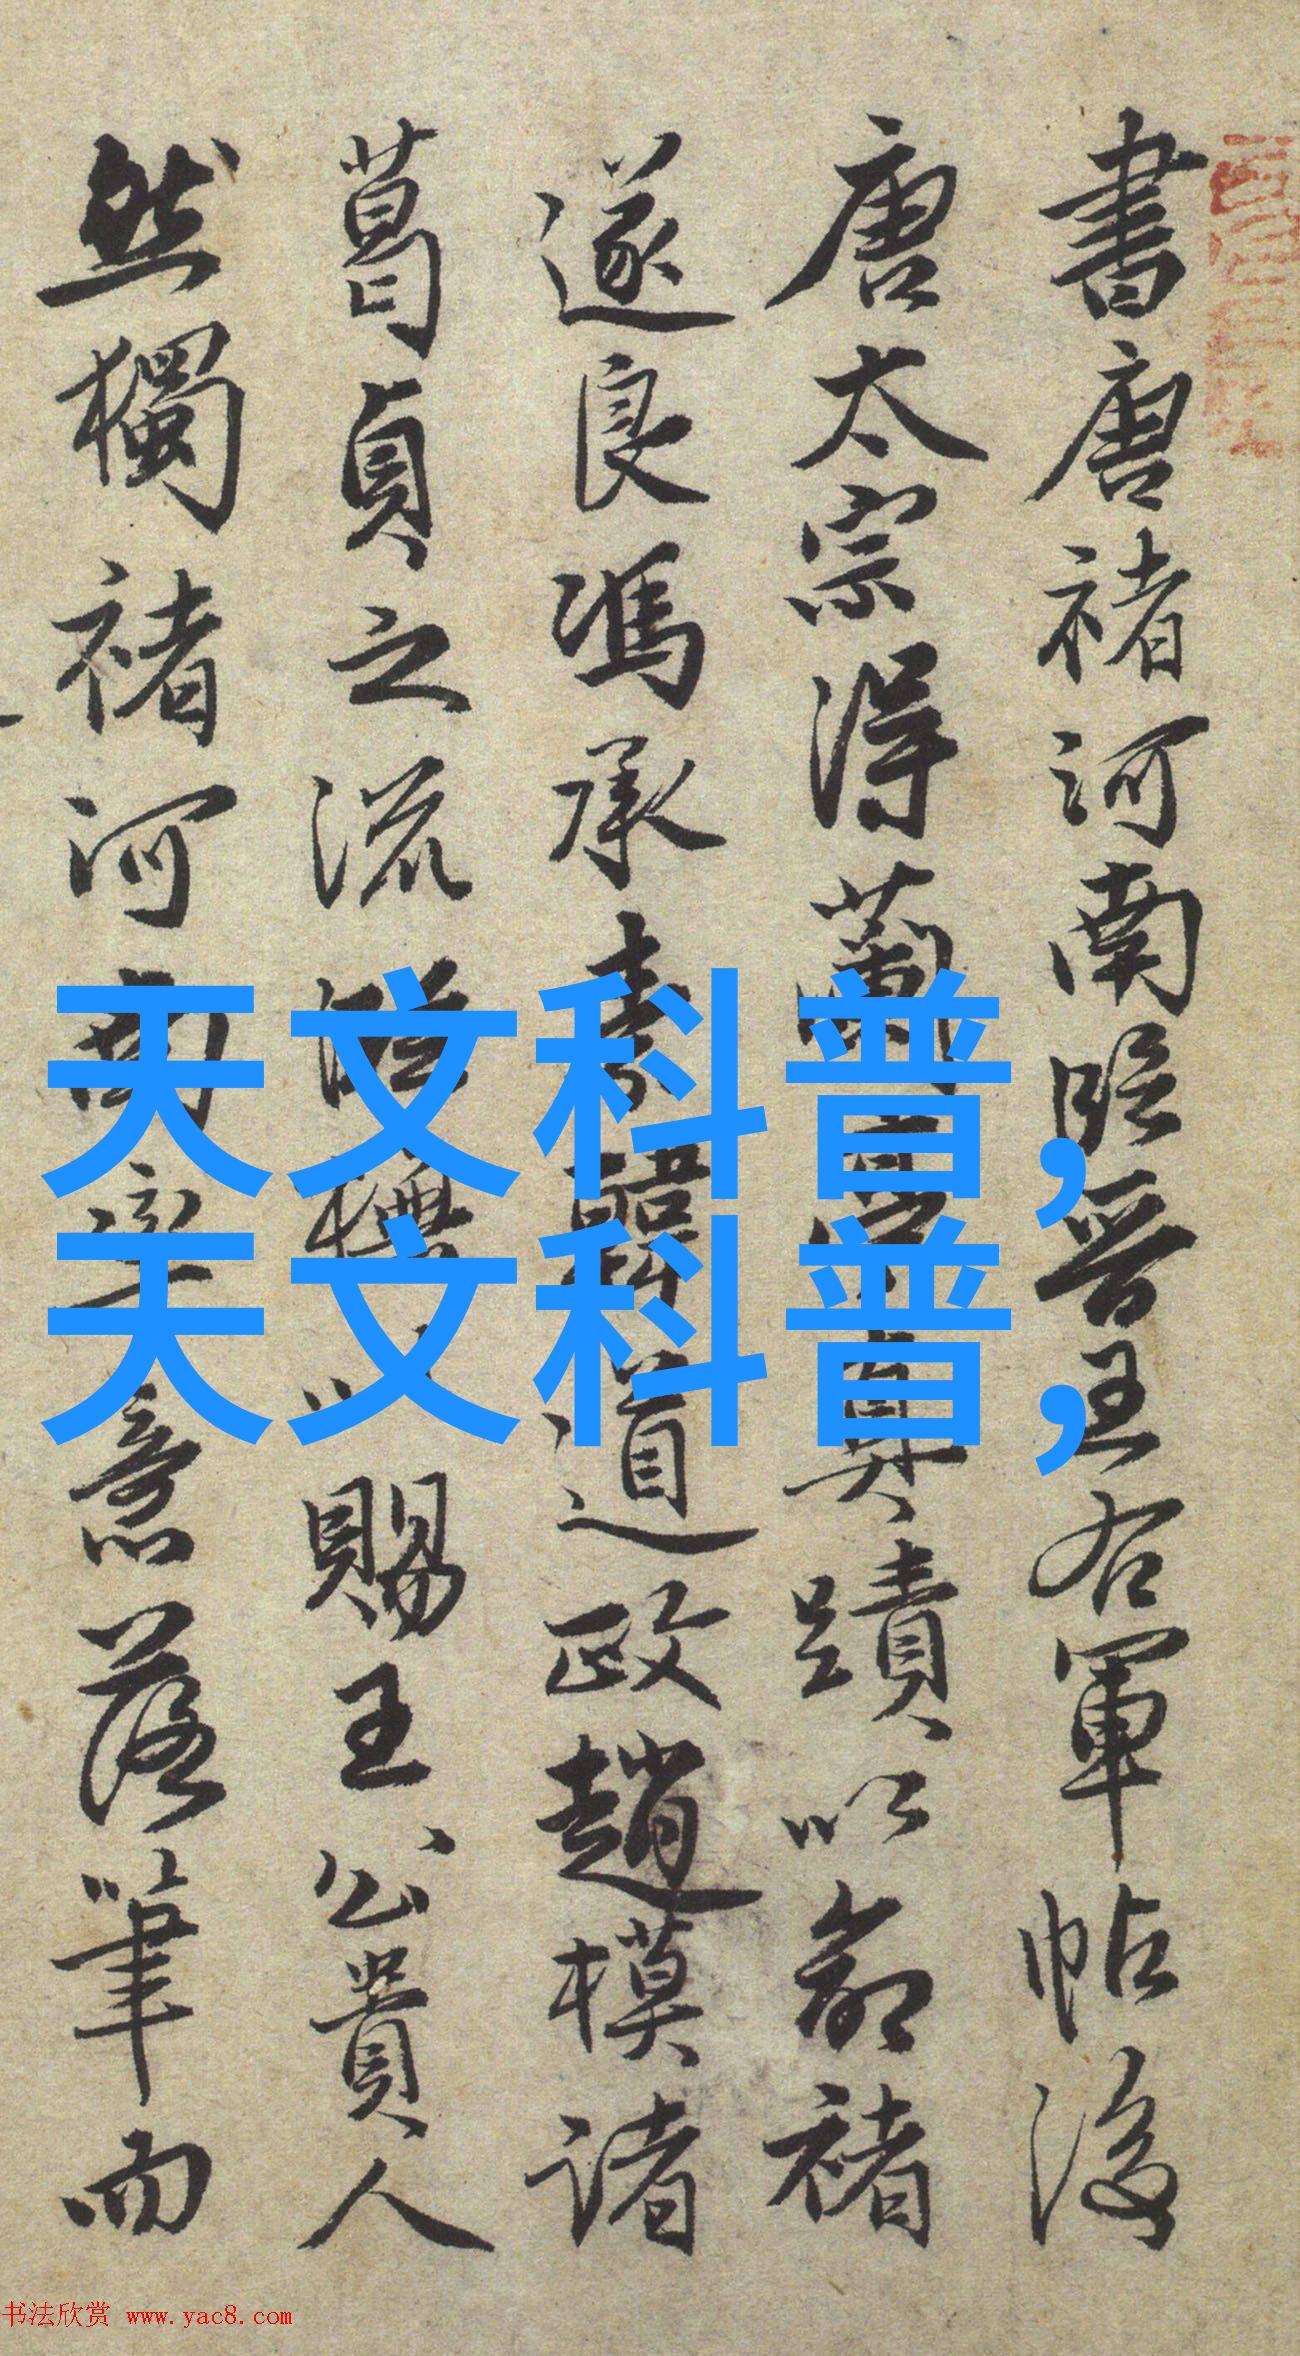 書唐褚河南臨晉王右軍帖後
唐太宗得蘭亭真蹟以命褚
遂良馮承素韓道政趙模諸
葛貞之流以賜王公貴人
然獨褚河南意落筆而
天文科普,
天文科普,
书法欣赏 www.yac8.com